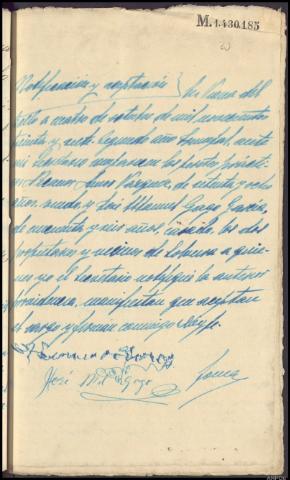 M.1.430.185
Notificación y aceptación } En Puebla del
a cuatro de octubre de mil novecientos
treinta y siete. Segundo año triunfal, ante
mi Secretario comparecen los peritos
Ramon Vazquez, de setenta y ocho
años, viudo, y José Manuel Gago Garcia,
de cincuenta y seis años, los dos
propietarios y vecinos de a quie-
nes yo el Secretario notifiqué la anterior
providencia, manifiestan que aceptan
el cargo y firman conmigo. Doy fe.
José M. Gago